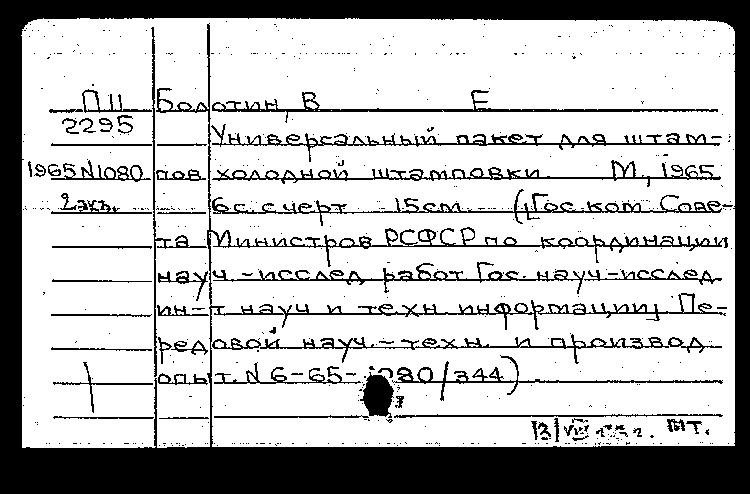 П 11 Болотин, В Е
2295
Универсальный пакет для штам-
1965 N1080 пов холодной штамповки. М., 1965
2 экз. 6 с. с черт 15 см (Гос. ком. Сове-
та Министров РСФСР по координации
науч-исслед работ Гос. науч-исслед
ин-т науч и техн информации] Пе-
редовой науч.-техн. и производ
опыт. N 6-65-1080/344)
13/VIII